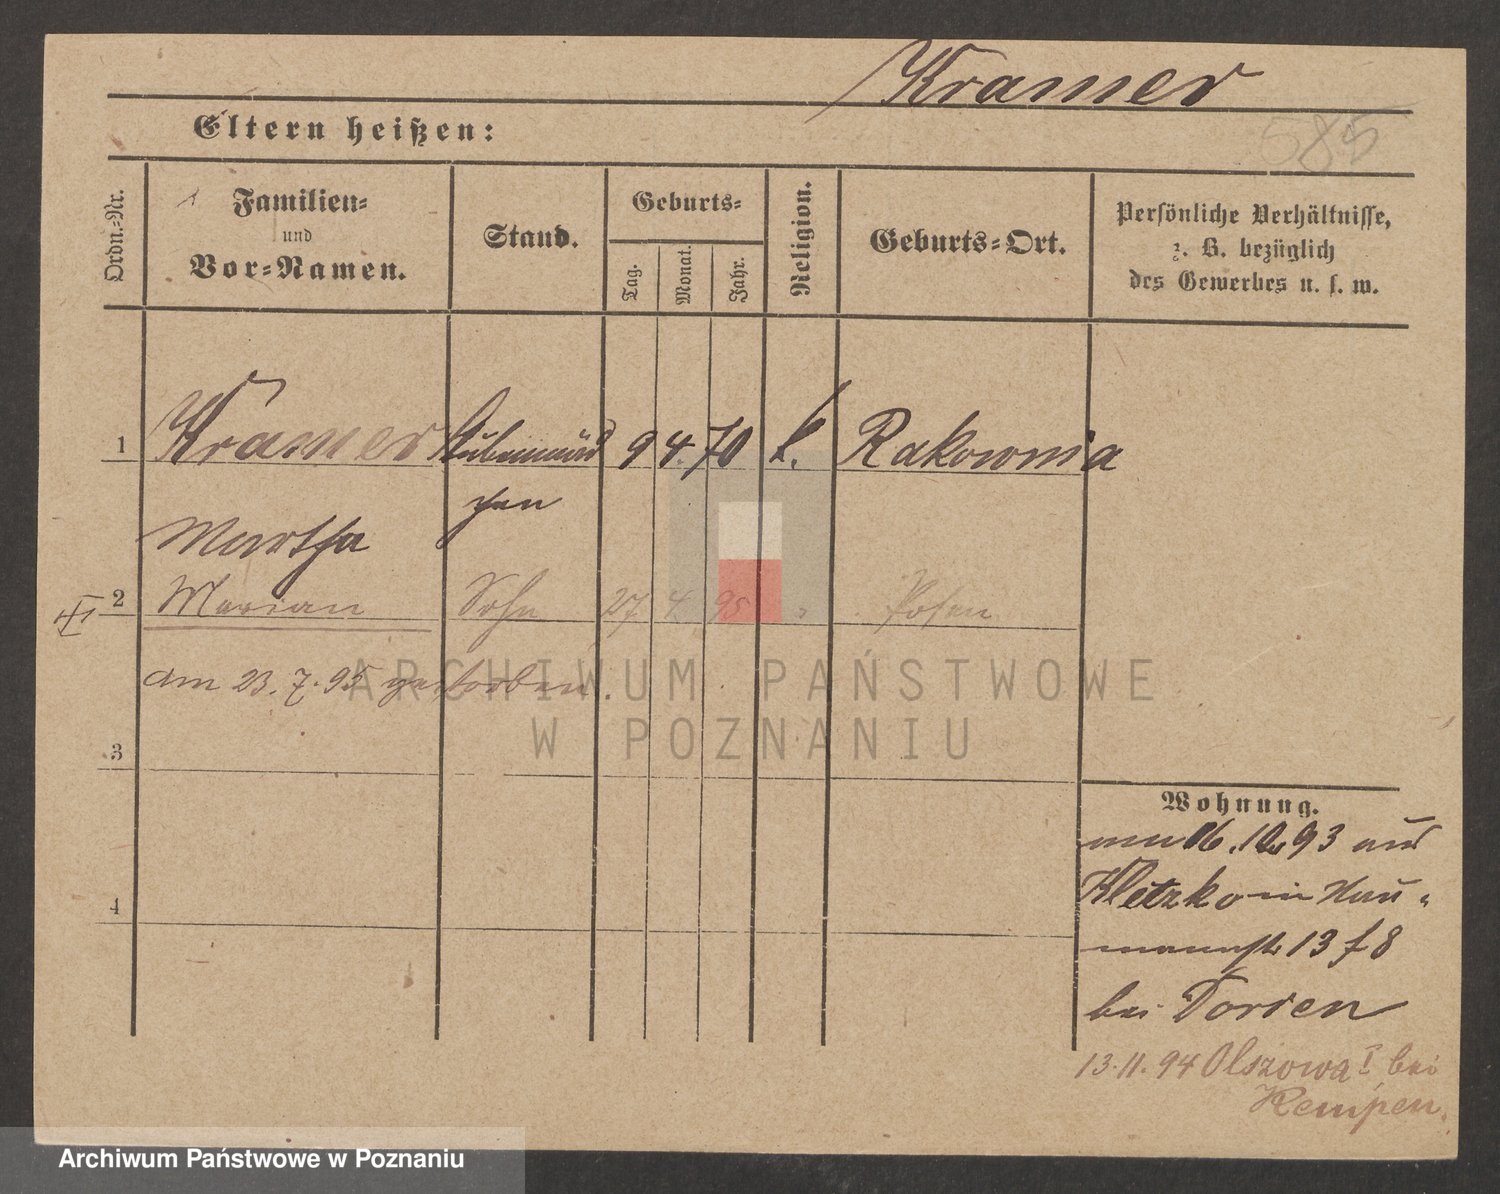 Kramer
585
Eltern heißen:
Ordn.-Nr.
Familien-
und
Vor-Namen.
Stand.
Geburts-
Tag.
Monat.
Jahr.
Religion.
Geburts-Ort.
Persönliche Verhältnisse,
z. B. bezüglich
des Gewerbes u. s. w.
1 Kramer Stubenmäd 9 4. 70 k. Rakownia
chen
Martha
2 Marian Sohn 27 4 95 " Posen
am 23.7.95 gestorben.
ARCHIWUM PAŃSTWOWE
W POZNANIU
3
4
Wohnung.
16.10.93 aus
Kletzko in Nau-
mannstr 13 f 8
bei Torsen
13.11.94 Olszowa I bei
Kempen.
Archiwum Państwowe w Poznaniu